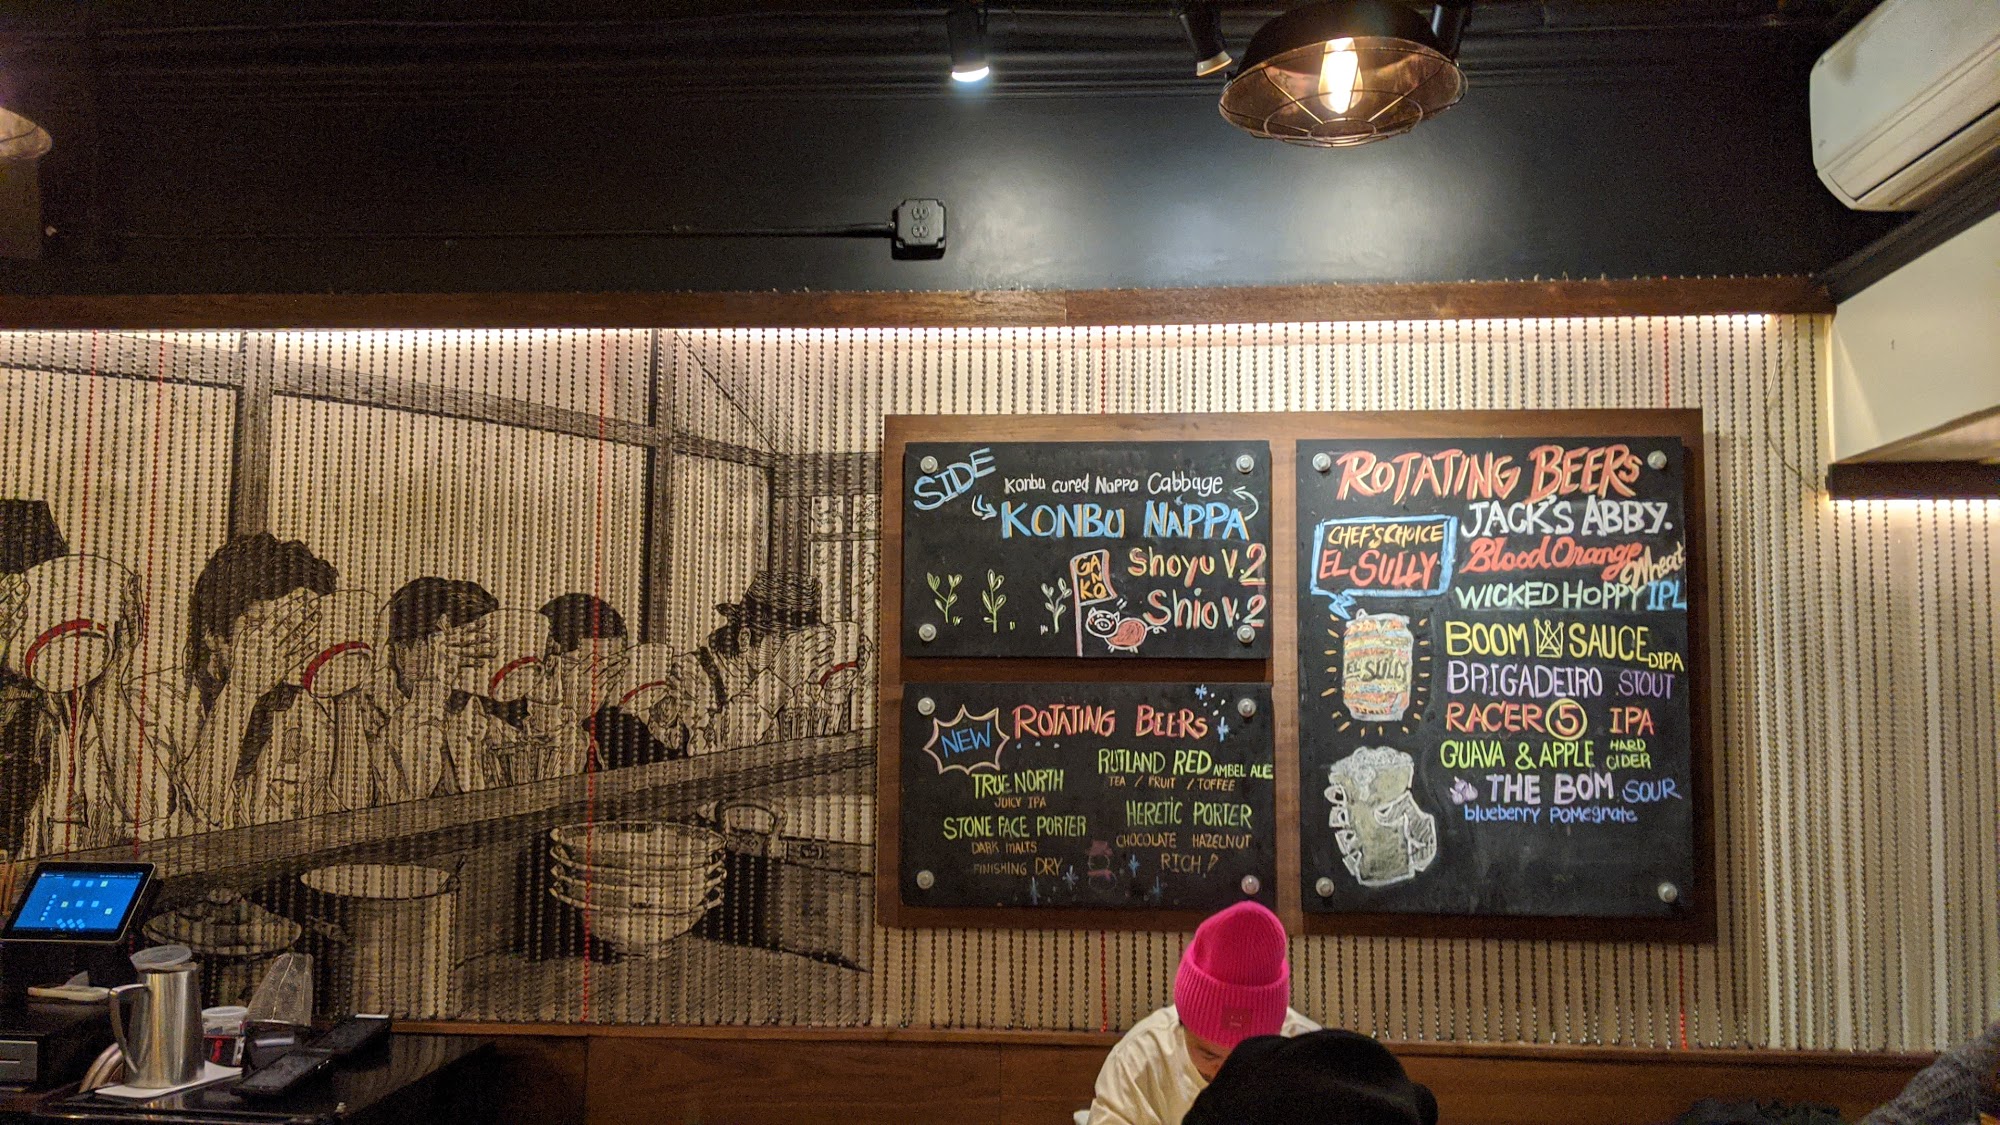 SIDE
Konbu cured Nappa Cabbage
KONBU NAPPA
Shoyu V.2
Shio V.2
GA
N
KO
NEW
ROTATING BEERS
TRUE NORTH
JUICY IPA
STONE FACE PORTER
DARK MALTS
FINISHING DRY
RUTLAND RED AMBEL ALE
TEA / FRUIT / TOFFEE
HERETIC PORTER
CHOCOLATE HAZELNUT
RICH!
ROTATING BEERS
CHEF'S CHOICE
EL SULLY
EL SULLY
JACK'S ABBY.
Blood Orange Wheat
WICKED HOPPY IPL
BOOM SAUCE DIPA
BRIGADEIRO STOUT
RACER 5 IPA
GUAVA & APPLE HARD CIDER
THE BOM SOUR
blueberry POMEgRATE